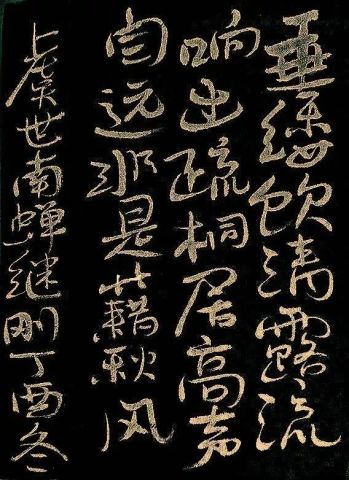 垂緌饮清露流
响出疏桐居高声
自远非是藉秋风
上虞世南蝉继刚丁酉冬